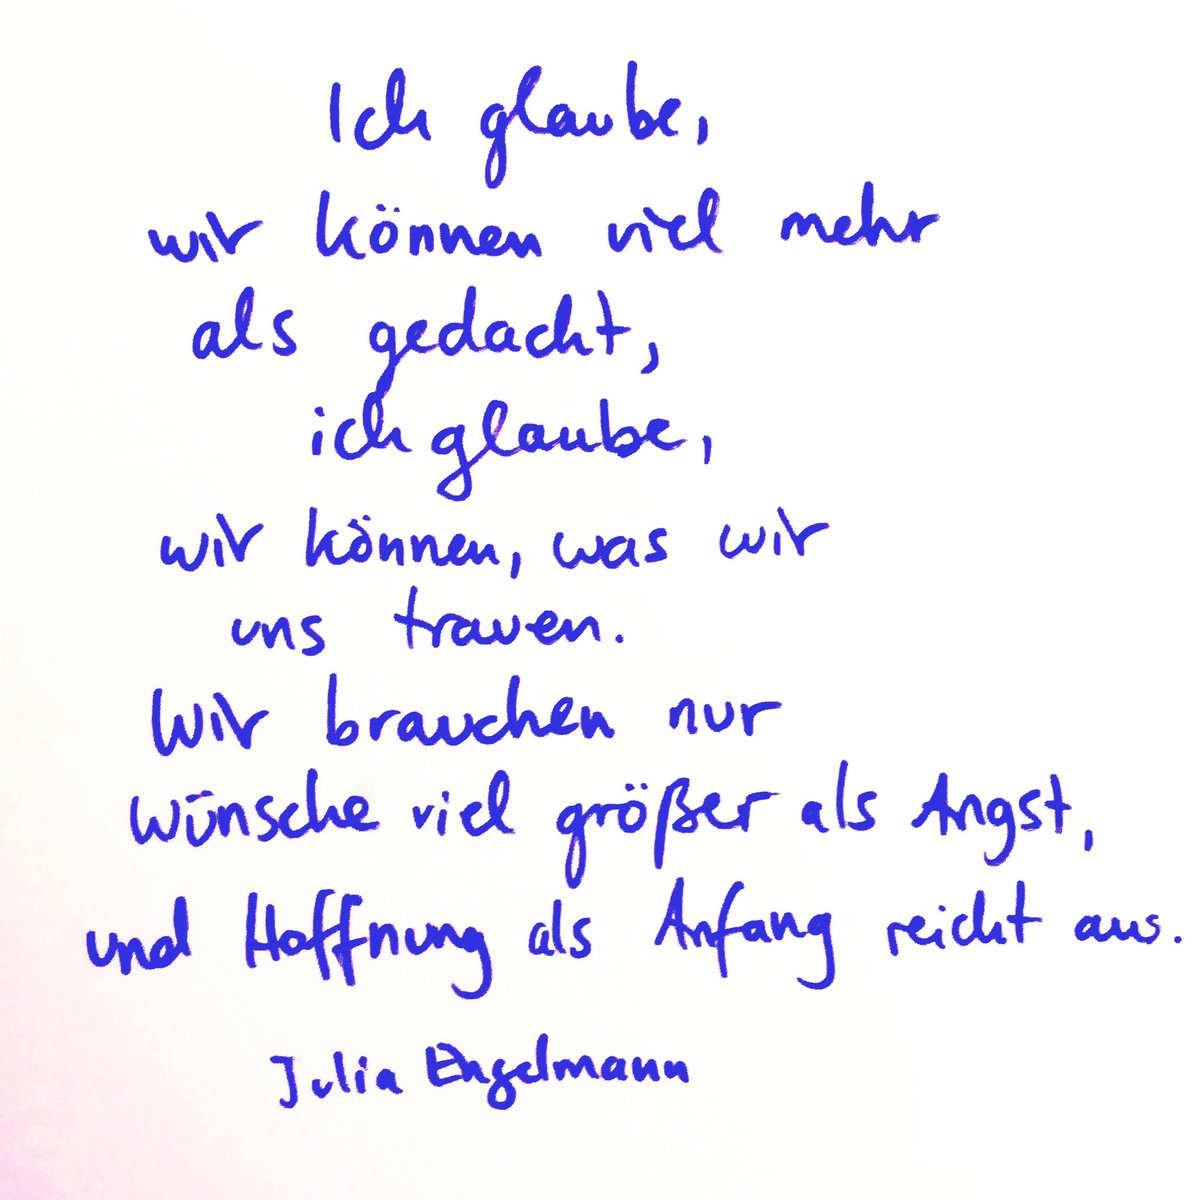 Ich glaube,
wir können viel mehr
als gedacht,
ich glaube,
wir können, was wir
uns trauen.
Wir brauchen nur
Wünsche viel größer als Angst,
und Hoffnung als Anfang reicht aus.
Julia Engelmann